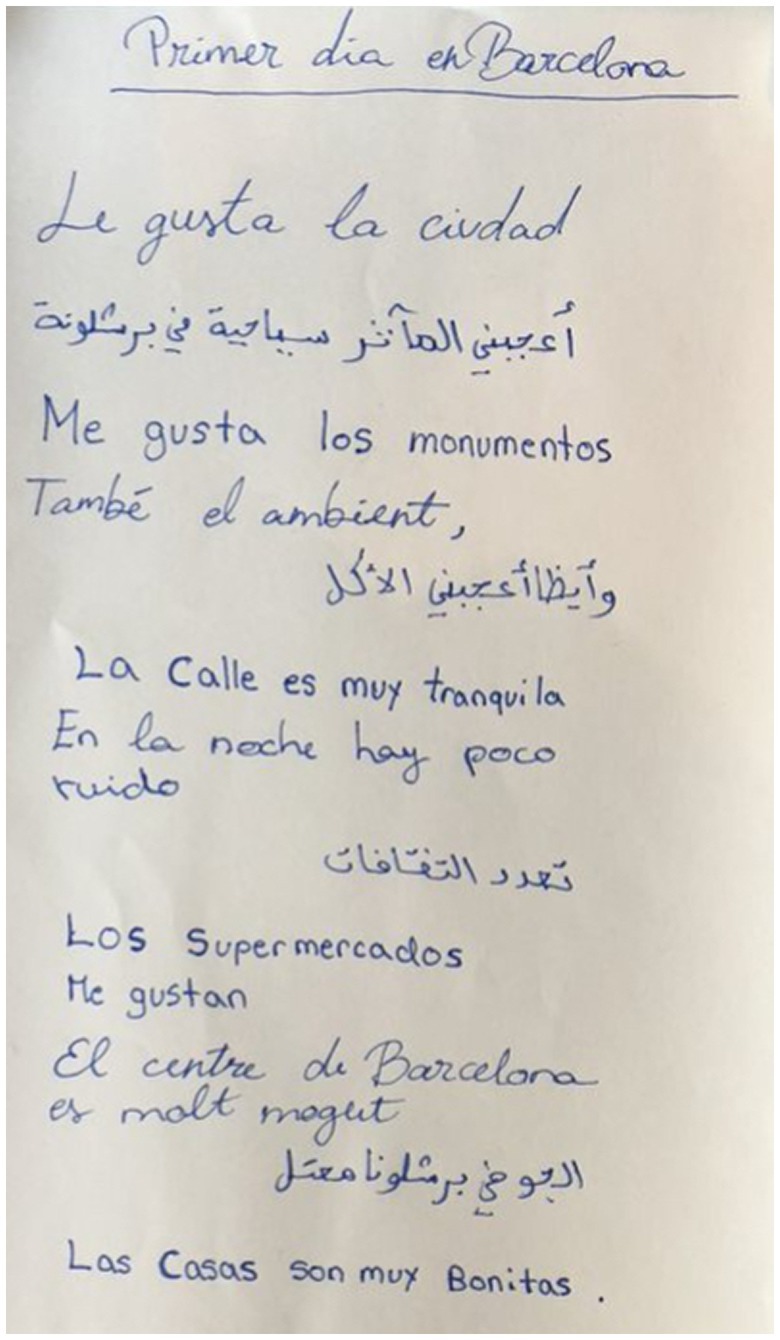 Primer dia en Barcelona
Le gusta la ciudad
أعجبني المآثر سياحية في برشلونة
Me gusta los monumentos
També el ambient,
وأيظا أعجبني الأكل
La Calle es muy tranquila
En la noche hay poco
ruido
تعدد التقافات
Los Supermercados
Me gustan
El centre de Barcelona
es molt mogut
الجو في برشلونا معتل
Las Casas son muy Bonitas .